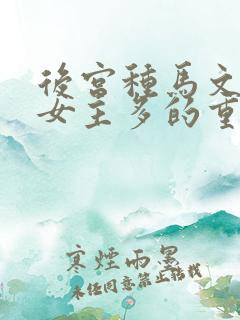 後宮種馬文
女主多的重
寒煙雨墨
未经同意禁止转载